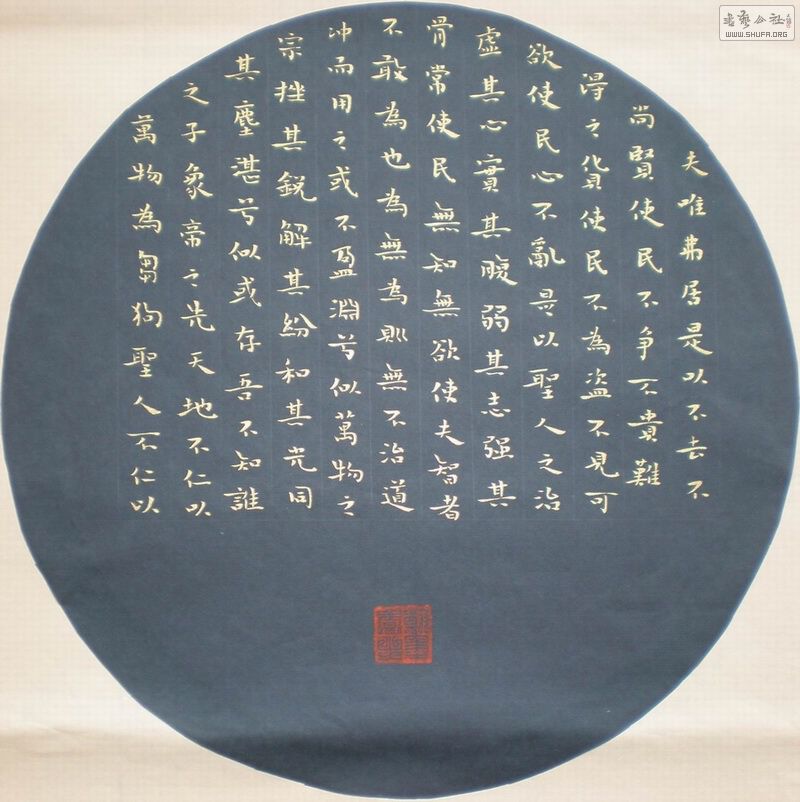 夫唯弗居是以不去不
尚賢使民不争不貴難
得之貨使民不為盗不見可
欲使民心不亂是以聖人之治
虛其心實其腹弱其志强其
骨常使民無知無欲使夫智者
不敢為也為無為則無不治道
冲而用之或不盈淵兮似萬物之
宗挫其銳解其紛和其光同
其塵湛兮似或存吾不知誰
之子象帝之先天地不仁以
萬物為芻狗聖人不仁以
書藝公社
WWW.SHUFA.ORG